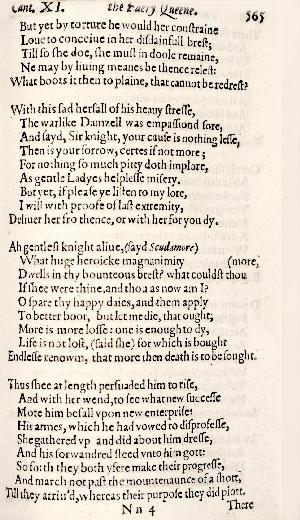 Cant. XI. the Faery Queene. 565
But yet by torture he would her constraine
Loue to conceiue in her disdainfull brest;
Till so she doe, she must in doole remaine,
Ne may by liuing meanes be thence relest:
What boots it then to plaine, that cannot be redrest?
With this sad hersall of his heauy stresse,
The warlike Damzell was empassiond sore,
And sayd, Sir knight, your cause is nothing lesse,
Then is your sorrow, certes if not more;
For nothing so much pitty doth implore,
As gentle Ladyes helplesse misery.
But yet, if please ye listen to my lore,
I will with proofe of last extremity,
Deliuer her fro thence, or with her for you dy.
Ah gentlest knight aliue, (sayd Scudamore)
What huge heroicke magnanimity (more,
Dwells in thy bounteous brest? what couldst thou
If shee were thine, and thou as now am I?
O spare thy happy daies, and them apply
To better boot, but let me die, that ought;
More is more losse: one is enough to dy,
Life is not lost, (said she) for which is bought
Endlesse renowm, that more then death is to be sought.
Thus shee at length persuaded him to rise,
And with her wend, to see what new successe
Mote him befall vpon new enterprise:
His armes, which he had vowed to disprofesse,
She gathered vp and did about him dresse,
And his forwandred steed vnto him gott:
So forth they both yfere make their progresse,
And march not past the mountenaunce of a shott,
Till they arriu'd, whereas their purpose they did plott.
N n 4 There